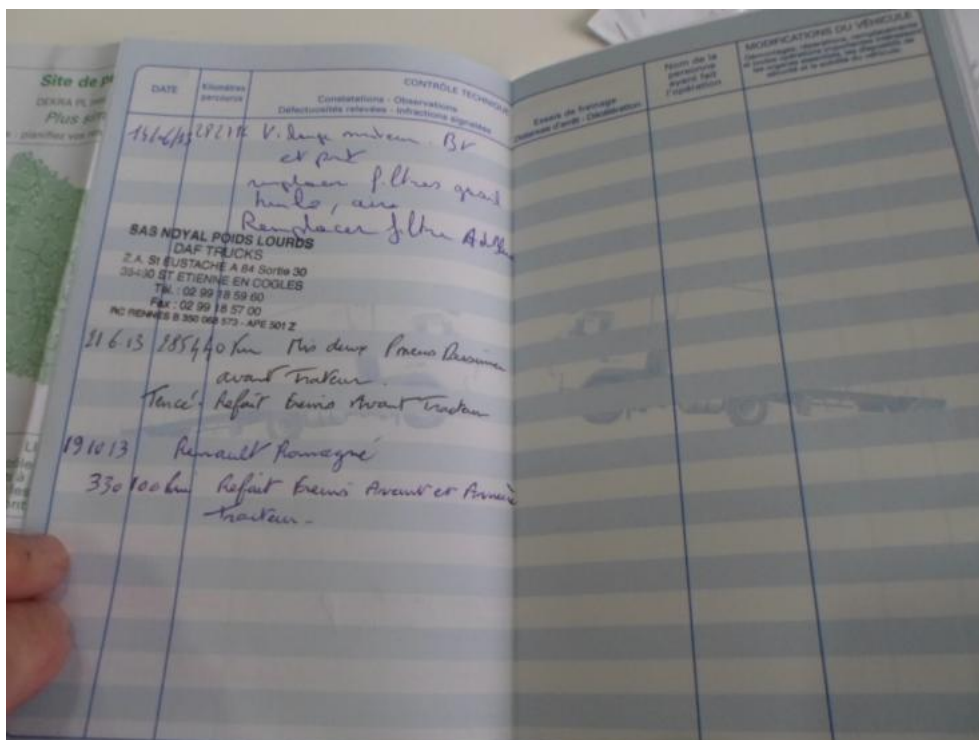 Site de
DEKRA PL
Plus
planifiez vos
DATE
Kilomètres parcourus
CONTRÔLE TECHNIQUE
Constatations - Observations
Défectuosités relevées - Infractions signalées
Essais de freinage
Distances d'arrêt - Décélération
Nom de la
personne
ayant fait
l'opération
MODIFICATIONS DU VÉHICULE
Vidange moteur. BV
et pont
remplacer filtres
huile,
Remplacer filtre
SAS NOYAL POIDS LOURDS
DAF TRUCKS
Z.A. St EUSTACHE A 84 Sortie 30
35430 ST ETIENNE EN COGLES
Tél. : 02 99 18 59 60
Fax : 02 99 18 57 00
RC RENNES B 350 068 573 - APE 501 Z
21 6.13 285440 km Mis deux Pneus
avant Tracteur.
Refait Freins Avant Tracteur
19 10 13 Renault Romagné
330 100 km Refait Freins Avant et Arrière
Tracteur.